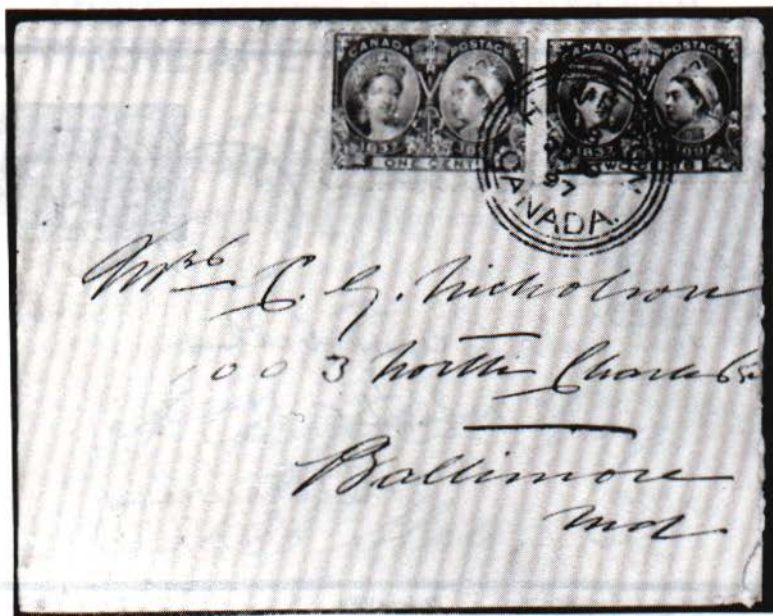 CANADA POSTAGE
1837 1897
ONE CENT
CANADA POSTAGE
1837 1897
TWO CENTS
97
CANADA.
Mrs C. G. Nicholson
1003 North Charles St
Baltimore
Md